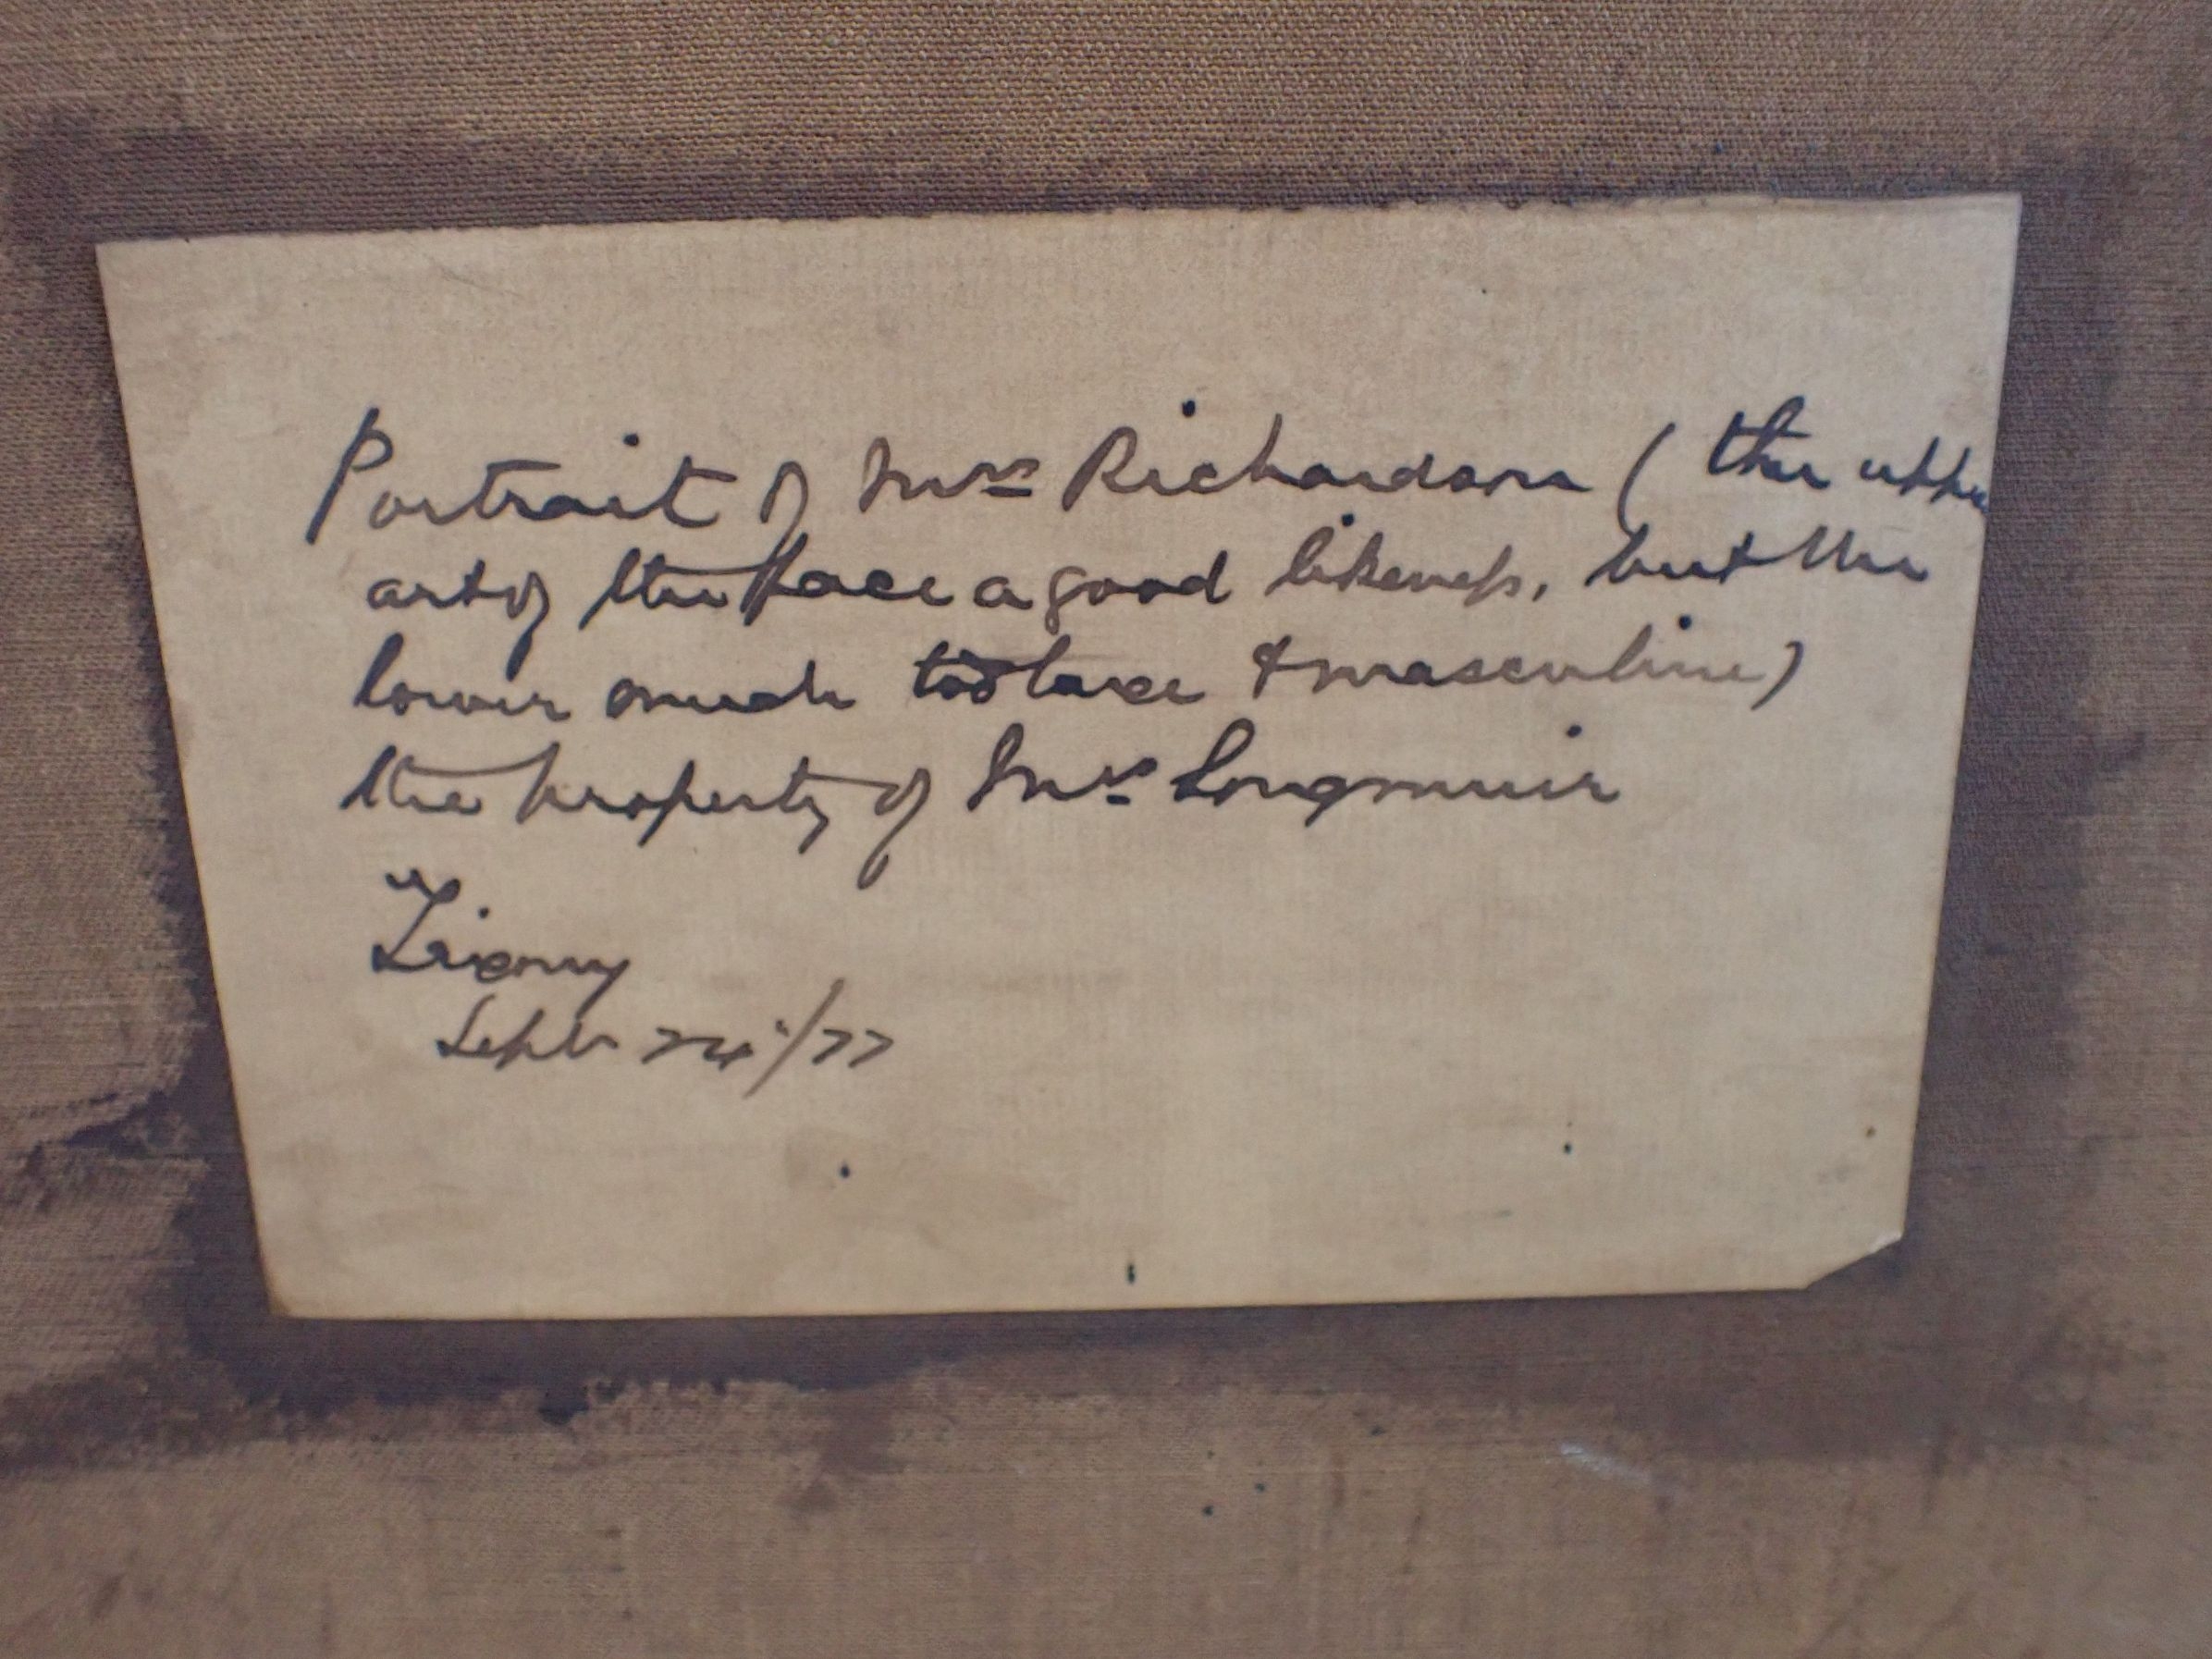 Portrait of Mrs Richardson (the uppe
art of the face a good likeness, but the
lower much too large & masculine)
the property of Mrs Longmuir
Septr 24/77